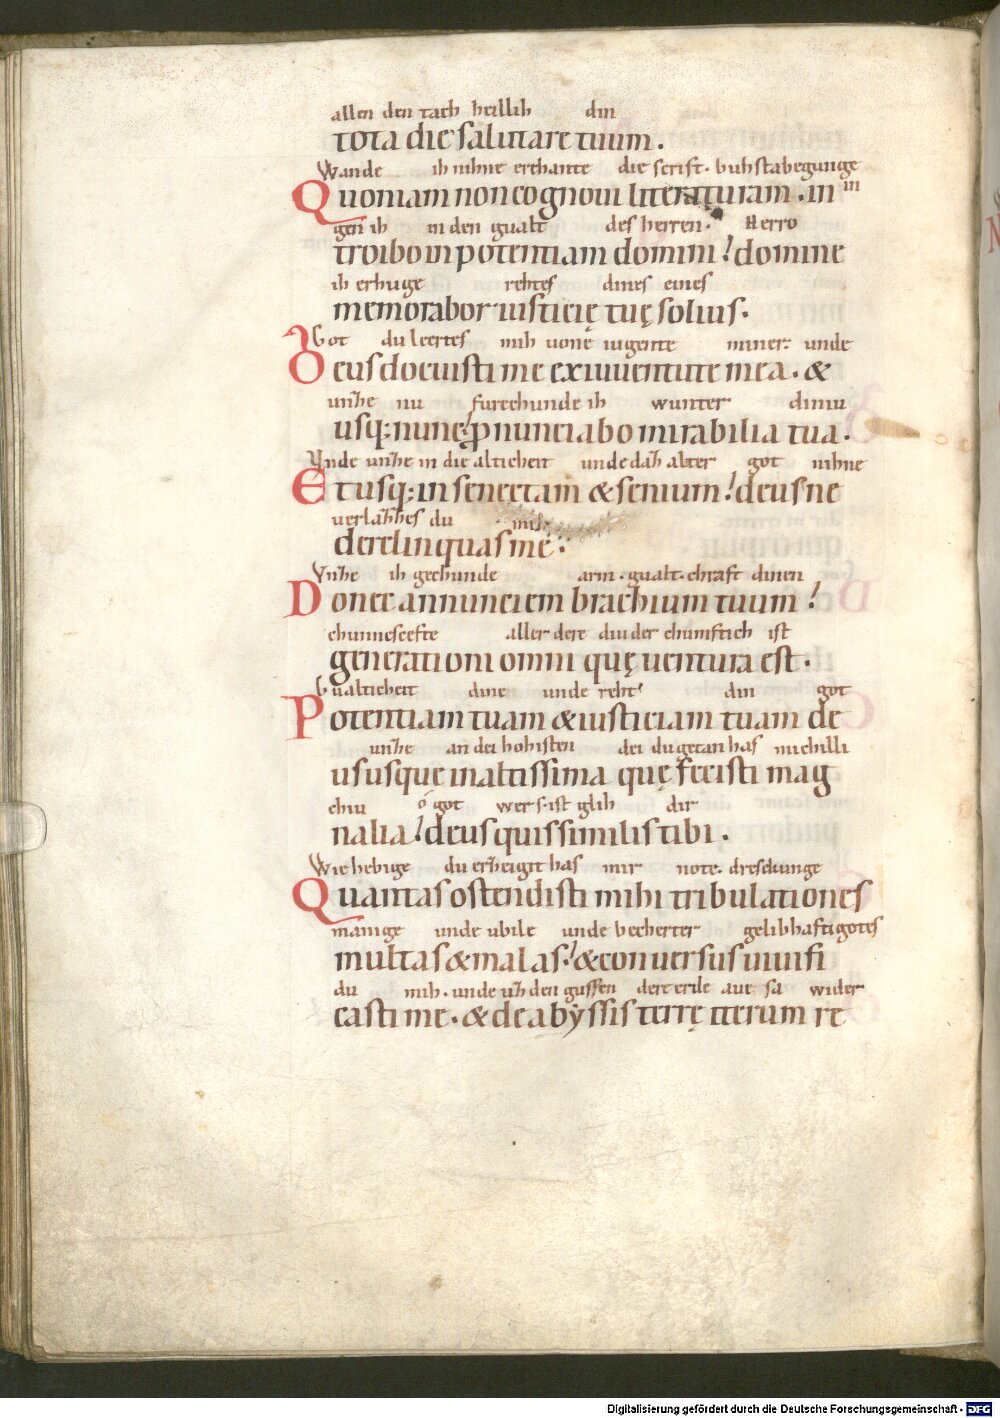 allen den tach heillih din
tota die salutare tuum.
Wande ih nihne erchante die scrift. buhstabegunge
Quoniam non cognoui literaturam. in
in
gen ih in den gualt des herren. Herro
troibo in potentiam domini! domine
ih erhuge rehtes dines eines
memorabor iusticię tuę solius.
Got du leertes mih uone iugente miner. unde
Deus docuisti me ex iuuentute mea. &
unzhe nu furechunde ih wunter diniu
usq; nunc! ꝓnunciabo mirabilia tua.
Unde unzhe in die alticheit unde daz alter got nihne
Et usq; in senectam & senium! deus ne
uerlazhes du mih
derelinquas me.
Vnzhe ih gechunde arm. gualt. chraft dinen
Donec annunciem brachium tuum!
chunnescefte aller dere diu der chumftich ist
generationi omni quę uentura est.
Gualticheit dine unde reht din got
Potentiam tuam & iusticiam tuam de
unzhe an dei hohisten dei du getan has michilli
us usque in altissima quę fecisti mag
chiu o got wer ist glih dir
nalia! deus quis similis tibi.
Wie hebige du erzheigit has mir note. dreschunge
Quantas ostendisti mihi tribulationes
manige unde ubile unde becherter gelibhaftigotes
multas & malas! & conuersus uiuifi
du mih. unde uz den gussen dere erde aue sa wider
casti me. & de abyssis terrę iterum re
Digitalisierung gefördert durch die Deutsche Forschungsgemeinschaft - DFG